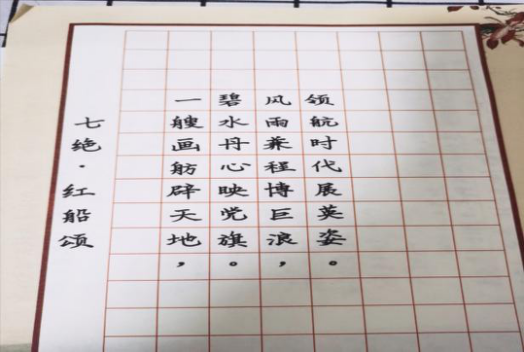 七绝·红船颂
一艘画舫辟天地，
碧水丹心映党旗。
风雨兼程博巨浪，
领航时代展英姿。